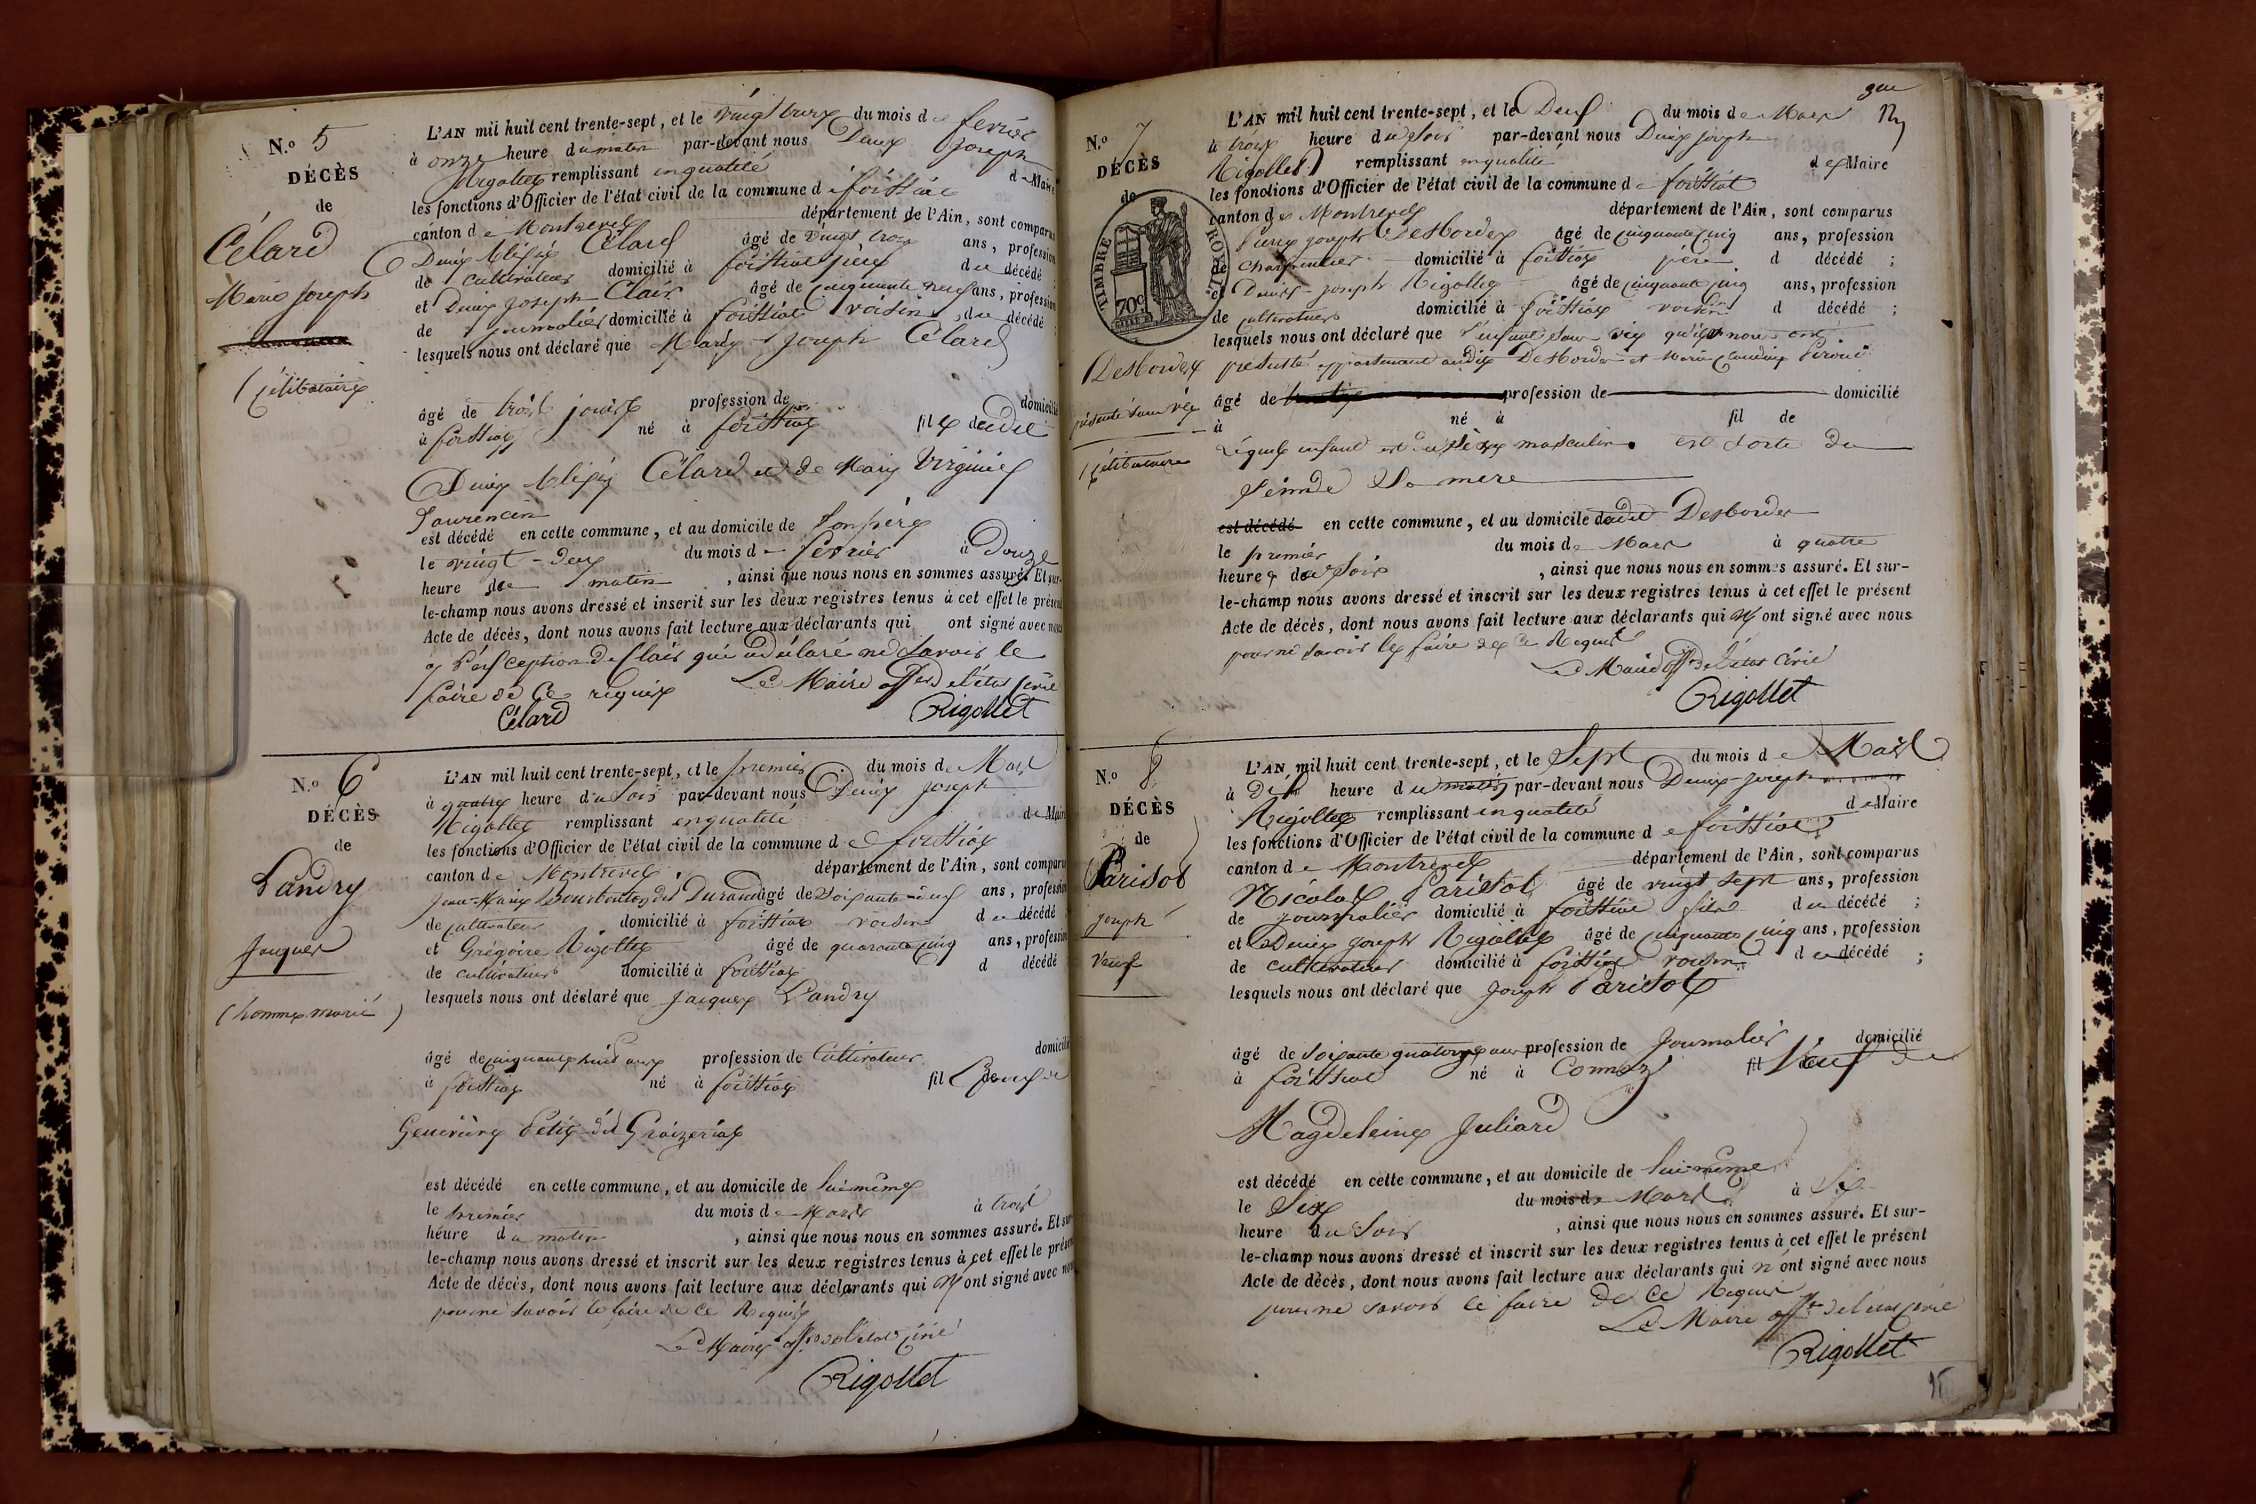 N.o 5
DÉCÈS
de
Célard
Marie Joseph
(célibataire)
L'AN mil huit cent trente-sept, et le vingt deux du mois de février
à onze heure du matin par-devant nous Denis Joseph
Rigollet remplissant en qualité de Maire
les fonctions d'Officier de l'état civil de la commune de foissiat
canton de Montrevel département de l'Ain, sont comparus
Denis Alexis Célard âgé de vingt trois ans, profession
de cultivateur domicilié à foissiat père du décédé ;
et Denis Joseph Clair âgé de cinquante neuf ans, profession
de journalier domicilié à foissiat voisin du décédé ;
lesquels nous ont déclaré que Marie Joseph Célard
âgé de trois jours profession de domicilié
à foissiat né à foissiat fils dudit
Denis Alexis Célard et de Marie Virginie
Laurencin
est décédé en cette commune, et au domicile de son père
le vingt-deux du mois de février à Douze
heure de matin, ainsi que nous nous en sommes assuré. Et sur-
le-champ nous avons dressé et inscrit sur les deux registres tenus à cet effet le présent
Acte de décès, dont nous avons fait lecture aux déclarants qui ont signé avec nous
à l'exception de Clair qui a déclaré ne savoir le
faire de ce requis Le Maire off. de l'état civil
Célard Rigollet
N.o 6
DÉCÈS
de
Landry
Jacques
(homme marié)
L'AN mil huit cent trente-sept, et le premier du mois de Mars
à quatre heure du soir par-devant nous Denis Joseph
Rigollet remplissant en qualité de Maire
les fonctions d'Officier de l'état civil de la commune de foissiat
canton de Montrevel département de l'Ain, sont comparu
Jean-Marie Bourbouton dit Durand âgé de soixante neuf ans, profession
de cultivateur domicilié à foissiat voisin du décédé ;
et Grégoire Rigollet âgé de quarante cinq ans, profession
de cultivateur domicilié à foissiat d décédé
lesquels nous ont déclaré que Jacques Landry
âgé de cinquante huit ans profession de Cultivateur domicilié
à foissiat né à foissiat fil Epoux de
Geneviève Petit dit Groizeriat
est décédé en cette commune, et au domicile de lui même
le premier du mois de Mars à trois
heure du matin, ainsi que nous nous en sommes assuré. Et sur-
le-champ nous avons dressé et inscrit sur les deux registres tenus à cet effet le présent
Acte de décès, dont nous avons fait lecture aux déclarants qui n'ont signé avec nous
pour ne savoir le faire de ce Requis
Le Maire off. de l'état civil
Rigollet
N.o 7
DÉCÈS
de
TIMBRE ROYAL
70c
Desbordes
présenté sans vie
(célibataire
L'AN mil huit cent trente-sept, et le Deux du mois de Mars
à trois heure du soir par-devant nous Denis Joseph
Rigollet remplissant en qualité de Maire
les fonctions d'Officier de l'état civil de la commune de foissiat
canton de Montrevel département de l'Ain, sont comparus
Pierre Joseph Desbordes âgé de cinquante cinq ans, profession
de charpentier domicilié à foissiat père d décédé ;
et Denis-Joseph Rigollet âgé de cinquante cinq ans, profession
de cultivateur domicilié à foissiat voisin d décédé ;
lesquels nous ont déclaré que l'enfant sans vie qu'ils nous ont
présenté appartenant audit Desbordes et Marie Claudine
âgé de profession de domicilié
à né à fil de
Lequel enfant est du sexe masculin est sorti du
sein de sa mère
est décédé en cette commune, et au domicile dudit Desbordes
le premier du mois de Mars à quatre
heures du soir, ainsi que nous nous en sommes assuré. Et sur-
le-champ nous avons dressé et inscrit sur les deux registres tenus à cet effet le présent
Acte de décès, dont nous avons fait lecture aux déclarants qui n'ont signé avec nous
pour ne savoir le faire de ce Requis
Le Maire off. de l'état Civil
Rigollet
N.o 8
DÉCÈS
de
Parisot
Joseph
Veuf
L'AN mil huit cent trente-sept, et le Sept du mois de Mars
à Dix heure du matin par-devant nous Denis-Joseph
Rigollet remplissant en qualité de Maire
les fonctions d'Officier de l'état civil de la commune de foissiat
canton de Montrevel département de l'Ain, sont comparus
Nicolas Parisot âgé de vingt sept ans, profession
de journalier domicilié à foissiat fils du décédé ;
et Denis Joseph Rigollet âgé de cinquante cinq ans, profession
de cultivateur domicilié à foissiat voisin du décédé ;
lesquels nous ont déclaré que Joseph Parisot
âgé de soixante quatorze ans profession de Journalier domicilié
à foissiat né à Cormoz fil Veuf de
Magdeleine Juliard
est décédé en cette commune, et au domicile de lui-même
le Six du mois de Mars à Six
heure du soir, ainsi que nous nous en sommes assuré. Et sur-
le-champ nous avons dressé et inscrit sur les deux registres tenus à cet effet le présent
Acte de décès, dont nous avons fait lecture aux déclarants qui n'ont signé avec nous
pour ne savoir le faire de ce Requis
Le Maire off. de l'état civil
Rigollet